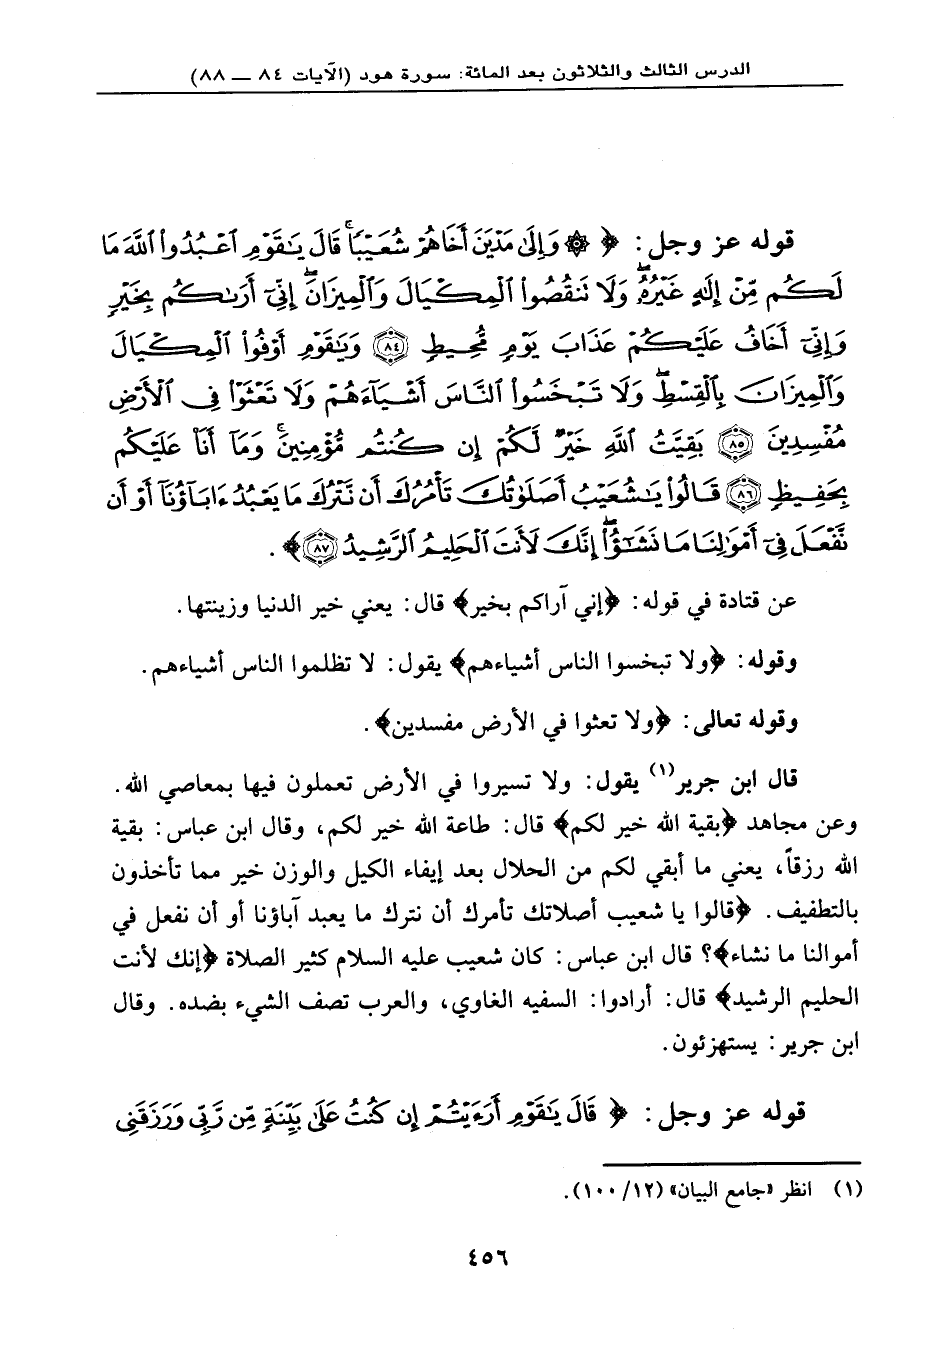 الدرس الثالث والثلاثون بعد المائة: سورة هود (الآيات ٨٤ — ٨٨)
قوله عز وجل: ﴿ ۞ وَإِلَىٰ مَدْيَنَ أَخَاهُمْ شُعَيْبًا ۚ قَالَ يَـٰقَوْمِ ٱعْبُدُوا۟ ٱللَّهَ مَا
لَكُم مِّنْ إِلَـٰهٍ غَيْرُهُۥ ۖ وَلَا تَنقُصُوا۟ ٱلْمِكْيَالَ وَٱلْمِيزَانَ ۖ إِنِّىٓ أَرَىٰكُم بِخَيْرٍ
وَإِنِّىٓ أَخَافُ عَلَيْكُمْ عَذَابَ يَوْمٍ مُّحِيطٍ ٨٤ وَيَـٰقَوْمِ أَوْفُوا۟ ٱلْمِكْيَالَ
وَٱلْمِيزَانَ بِٱلْقِسْطِ ۖ وَلَا تَبْخَسُوا۟ ٱلنَّاسَ أَشْيَآءَهُمْ وَلَا تَعْثَوْا۟ فِى ٱلْأَرْضِ
مُفْسِدِينَ ٨٥ بَقِيَّتُ ٱللَّهِ خَيْرٌ لَّكُمْ إِن كُنتُم مُّؤْمِنِينَ ۚ وَمَآ أَنَا۠ عَلَيْكُم
بِحَفِيظٍ ٨٦ قَالُوا۟ يَـٰشُعَيْبُ أَصَلَوٰتُكَ تَأْمُرُكَ أَن نَّتْرُكَ مَا يَعْبُدُ ءَابَآؤُنَآ أَوْ أَن
نَّفْعَلَ فِىٓ أَمْوَٰلِنَا مَا نَشَـٰٓؤُا۟ ۖ إِنَّكَ لَأَنتَ ٱلْحَلِيمُ ٱلرَّشِيدُ ٨٧ ﴾.
عن قتادة في قوله: ﴿إني آراكم بخير﴾ قال: يعني خير الدنيا وزينتها.
وقوله: ﴿ولا تبخسوا الناس أشياءهم﴾ يقول: لا تظلموا الناس أشياءهم.
وقوله تعالى: ﴿ولا تعثوا في الأرض مفسدين﴾.
قال ابن جرير(١) يقول: ولا تسيروا في الأرض تعملون فيها بمعاصي الله.
وعن مجاهد ﴿بقية الله خير لكم﴾ قال: طاعة الله خير لكم، وقال ابن عباس: بقية
الله رزقاً، يعني ما أبقي لكم من الحلال بعد إيفاء الكيل والوزن خير مما تأخذون
بالتطفيف. ﴿قالوا يا شعيب أصلاتك تأمرك أن نترك ما يعبد آباؤنا أو أن نفعل في
أموالنا ما نشاء﴾؟ قال ابن عباس: كان شعيب عليه السلام كثير الصلاة ﴿إنك لأنت
الحليم الرشيد﴾ قال: أرادوا: السفيه الغاوي، والعرب تصف الشيء بضده. وقال
ابن جرير: يستهزئون.
قوله عز وجل: ﴿ قَالَ يَـٰقَوْمِ أَرَءَيْتُمْ إِن كُنتُ عَلَىٰ بَيِّنَةٍ مِّن رَّبِّى وَرَزَقَنِى
(١) انظر «جامع البيان» (١٢/ ١٠٠).
٤٥٦